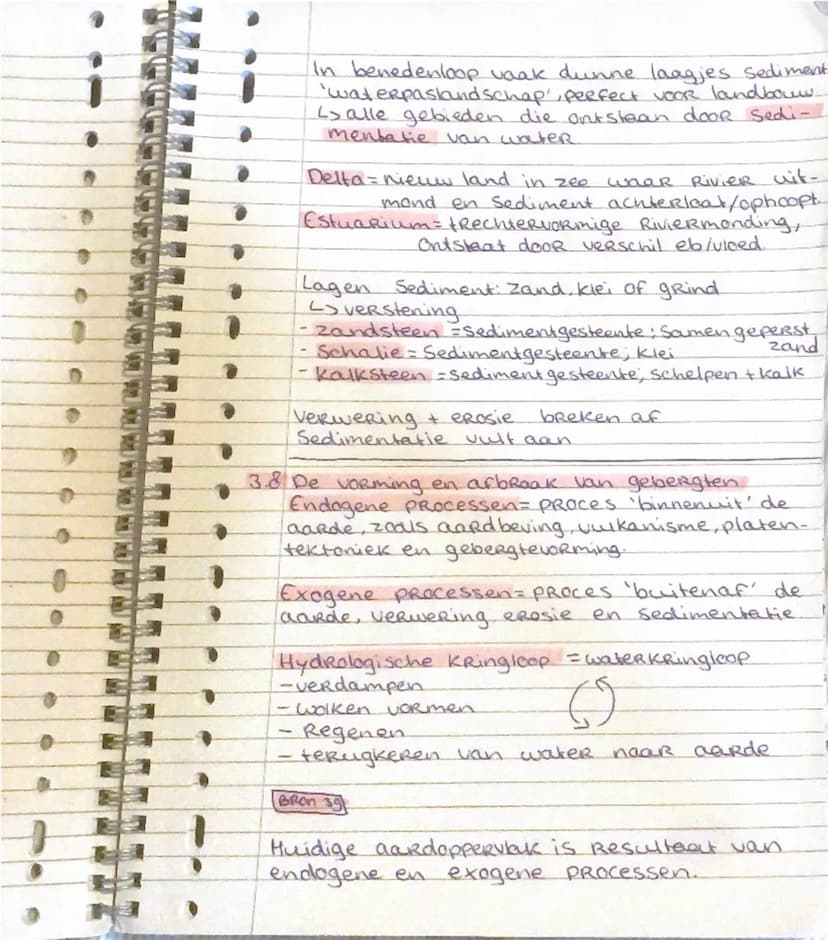 In benedenloop vaak dunne laagjes sediment
'waterpaslandschap', perfect voor landbouw
↳ alle gebieden die ontstaan door sedi-
mentatie van water
Delta = nieuw land in zee waar rivier uit-
mond en sediment achterlaat/ophoopt.
Estuarium = trechtervormige riviermonding,
ontstaat door verschil eb/vloed.
Lagen sediment: zand, klei of grind
↳ verstening
- zandsteen = sedimentgesteente; samengeperst
zand
- schalie = sedimentgesteente; klei
- kalksteen = sedimentgesteente; schelpen + kalk
verwering + erosie breken af
sedimentatie vult aan
3.8 De vorming en afbraak van gebergten
Endogene processen = proces 'binnenuit' de
aarde, zoals aardbeving, vulkanisme, platen-
tektoniek en gebergtevorming.
Exogene processen = proces 'buitenaf' de
aarde, verwering, erosie en sedimentatie
Hydrologische kringloop = waterkringloop
- verdampen
- wolken vormen
- regenen
- terugkeren van water naar aarde
Bron 39
Huidige aardoppervlak is resultaat van
endogene en exogene processen.